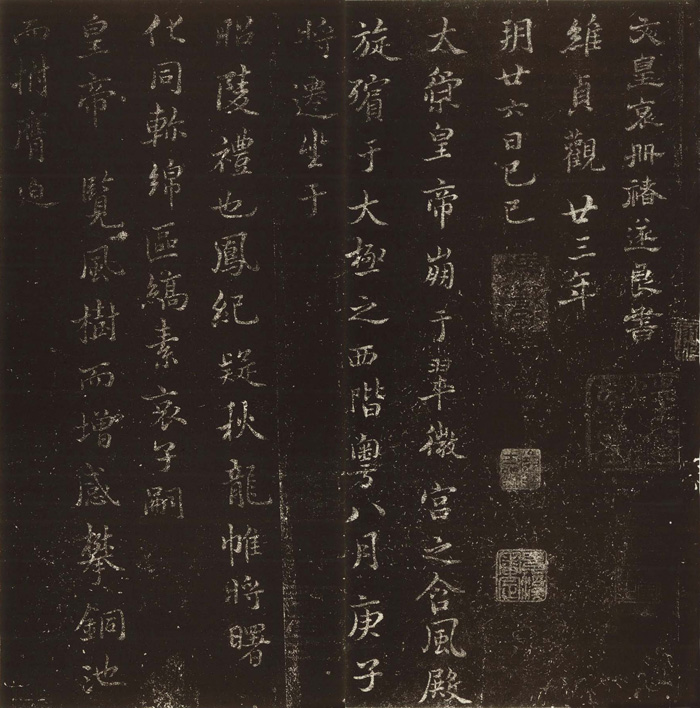 文皇哀冊褚遂良書
維貞觀廿三年
玥廿六日己巳
大行皇帝崩于翠微宮之含風殿
旋殯于大極之西階粵八月庚子
將遷坐于
昭陵禮也鳳紀疑秋龍帷將曙
化同軫綿區縞素哀子嗣
皇帝覽風樹而增感攀銅池
而拊膺迫